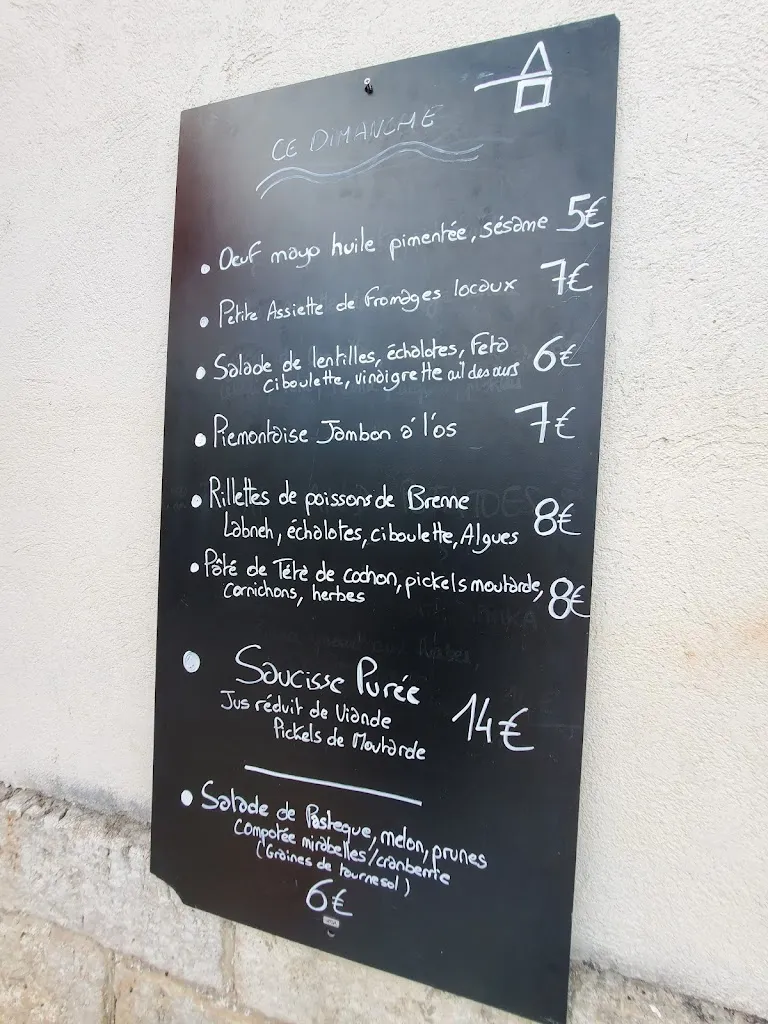 CE DIMANCHE
Oeuf mayo huile pimentée, sésame 5€
Petite Assiette de Fromages locaux 7€
Salade de lentilles, échalotes, Feta 6€
ciboulette, vinaigrette ail des ours
Piemontaise Jambon à l'os 7€
Rillettes de poissons de Brenne
Labneh, échalotes, ciboulette, Algues 8€
Pâté de Tête de cochon, pickels moutarde,
Cornichons, herbes 8€
Saucisse Purée
Jus réduit de Viande 14€
Pickels de Moutarde
Salade de Pasteque, melon, prunes
Compotée mirabelles/cranberrie
(Graines de tournesol)
6€